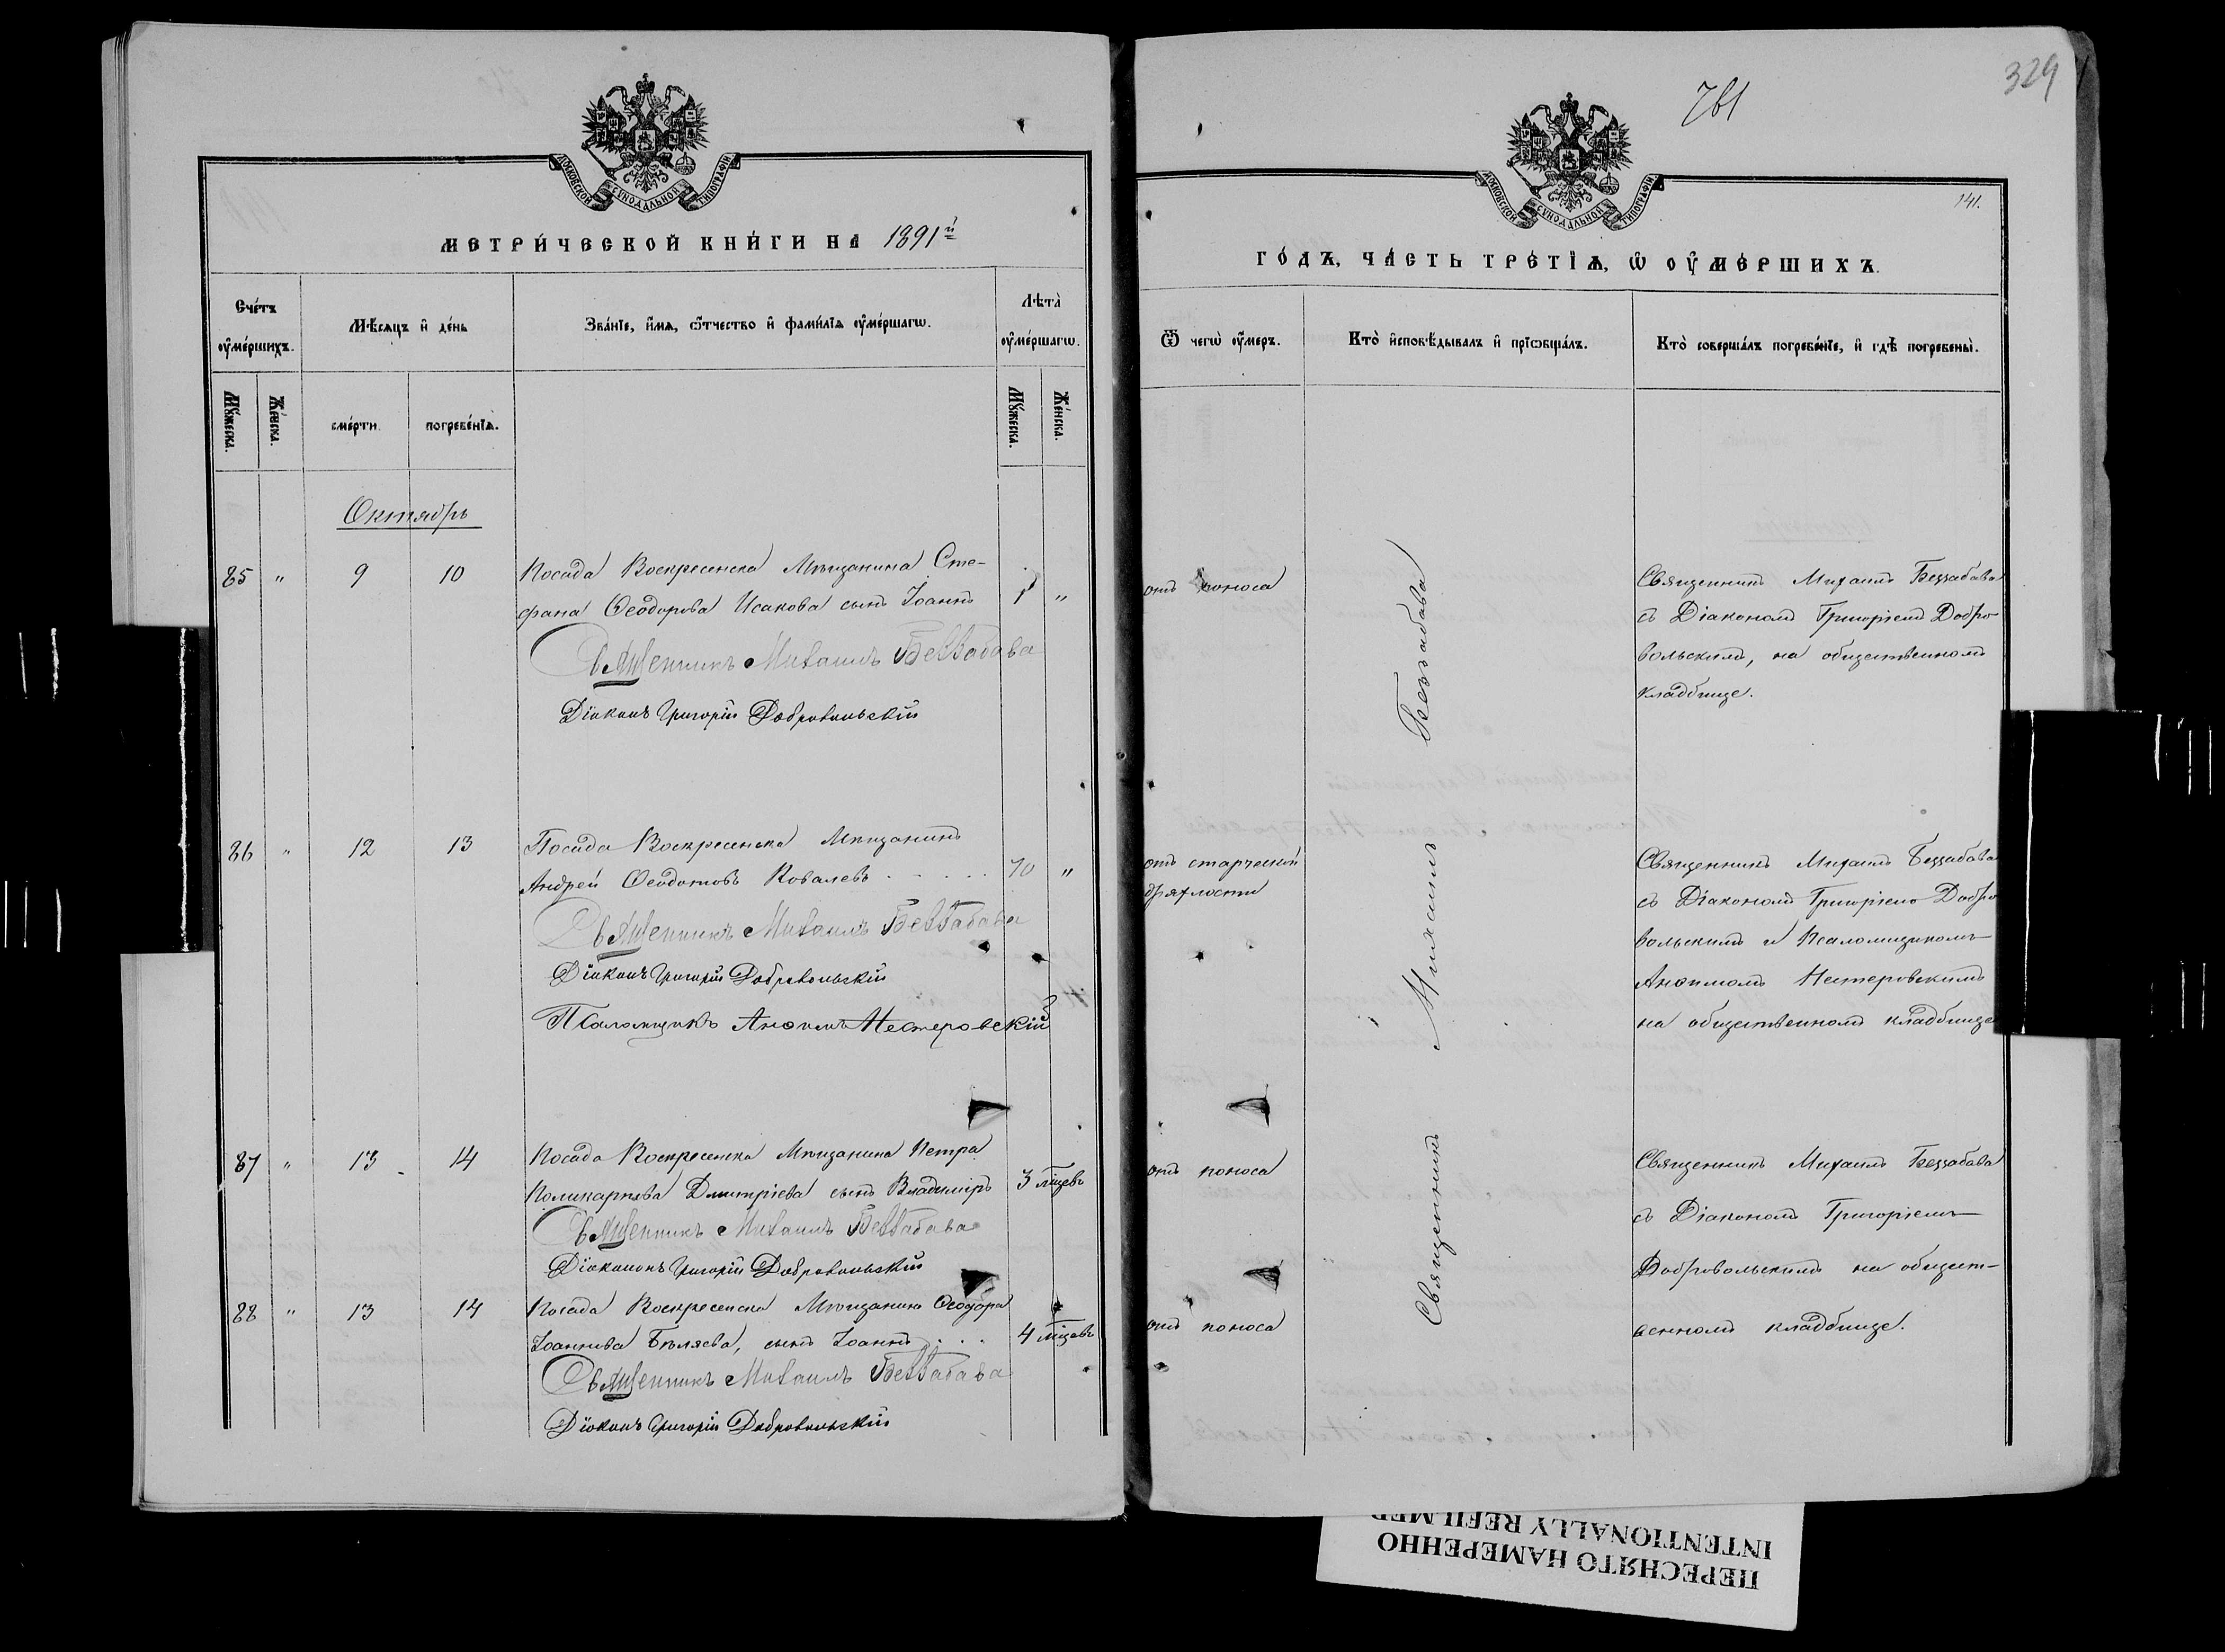 МОСКОВСКОЙ СѴНОДАЛЬНОЙ ТИПОГРАФІИ
МЕТРИ́ЧЕСКОЙ КНИ́ГИ НА 1891й
Сче́тъ ᲂу҆ме́ршихъ.
Мѣ́сяцъ и҆ де́нь
Зва́нїе, и҆́мѧ, ѻ҆́тчество и҆ фами́лїѧ ᲂу҆ме́ршагѡ.
Лѣта̀ ᲂу҆ме́ршагѡ.
Мꙋ́жеска.
Же́нска.
сме́рти.
погребе́нїѧ.
Мꙋ́жеска.
Же́нска.
Октябрь
85 " 9 10 Посада Воскресенска Мѣщанина Сте-
фана Ѳеодорова Исакова сынъ Іоаннъ 1 "
Священникъ Михаилъ Беззабава
Діаконъ Григорій Добровольскій
86 " 12 13 Посада Воскресенска Мѣщанинъ
Андрей Ѳеодотовъ Ковалевъ . . . . . 70 "
Священникъ Михаилъ Беззабава
Діаконъ Григорій Добровольскій
Псаломщикъ Анѳимъ Нестеровскій
87 " 13 14 Посада Воскресенска Мѣщанина Петра
Поликарпова Дмитріева сынъ Владиміръ 3 мѣцевъ
Священникъ Михаилъ Беззабава
Діаконъ Григорій Добровольскій
88 " 13 14 Посада Воскресенска Мѣщанина Ѳеодора
Іоаннова Бѣляева, сынъ Іоаннъ . . . 4 мѣцевъ
Священникъ Михаилъ Беззабава
Діаконъ Григорій Добровольскій
761
329
МОСКОВСКОЙ СѴНОДАЛЬНОЙ ТИПОГРАФІИ
141.
ГО́ДЪ, ЧА́СТЬ ТРЕ́ТЇѦ, Ѡ҆ ОУ҆МЕ́РШИХЪ.
Ѿ чегѡ̀ ᲂу҆́меръ.
Кто̀ и҆сповѣ́дывалъ и҆ прїѡбща́лъ.
Кто̀ соверша́лъ погребе́нїе, и҆ гдѣ̀ погребены̀.
отъ поноса
Священникъ Михаилъ Беззабава
Священникъ Михаилъ Беззабава
съ Діакономъ Григоріемъ Добро-
вольскимъ, на общественномъ
кладбище.
отъ старческой
дряхлости
Священникъ Михаилъ Беззабава
съ Діакономъ Григоріемъ Добро
вольскимъ и Псаломщикомъ
Анѳимомъ Нестеровскимъ
на общественномъ кладбище
отъ поноса
Священникъ Михаилъ Беззабава
съ Діакономъ Григоріемъ
Добровольскимъ на общест-
венномъ кладбище.
отъ поноса
ПЕРЕСНЯТО НАМЕРЕННО
INTENTIONALLY REFILMED